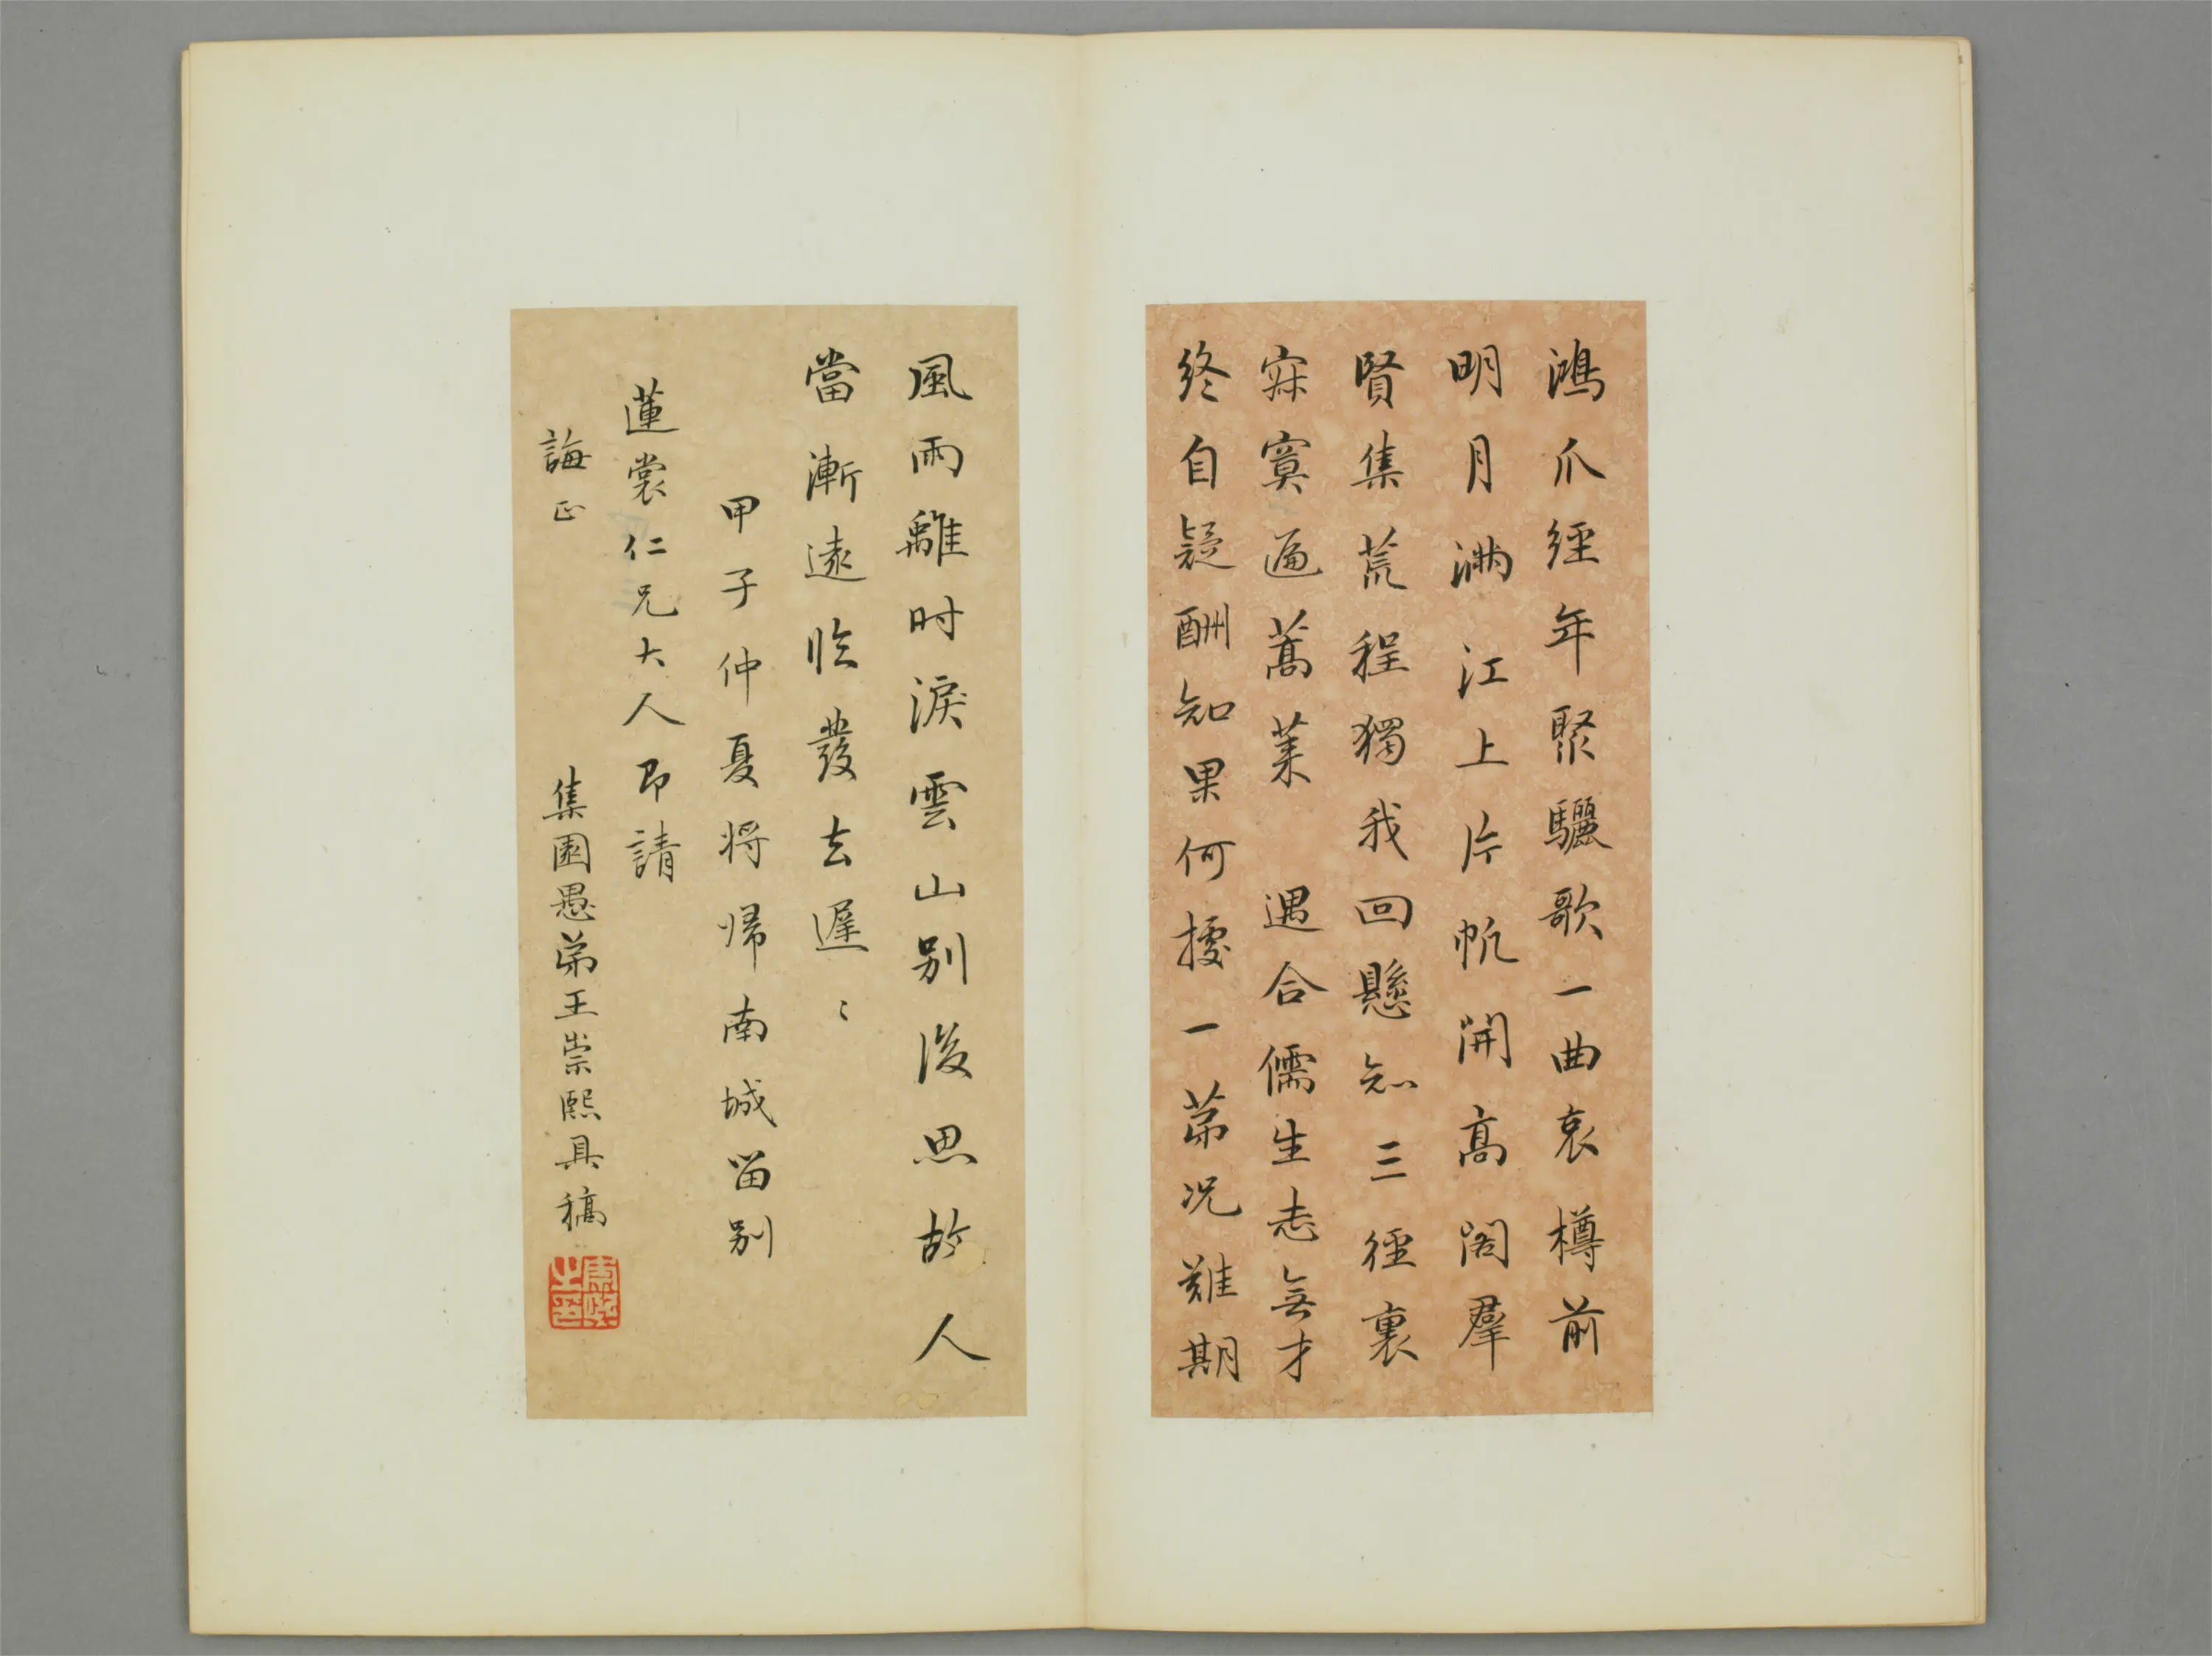 鴻爪經年聚驪歌一曲哀樽前
明月滿江上片帆開高閣羣
賢集荒程獨我回懸知三徑裏
寂寞遍蒿萊 遇合儒生志無才
終自疑酬知果何據一第況難期
風雨離時淚雲山別後思故人
當漸遠臨發去遲〻
甲子仲夏將歸南城留別
蓮裳仁兄大人即請
誨正
集園愚弟王崇熙具稿
崇熙之印